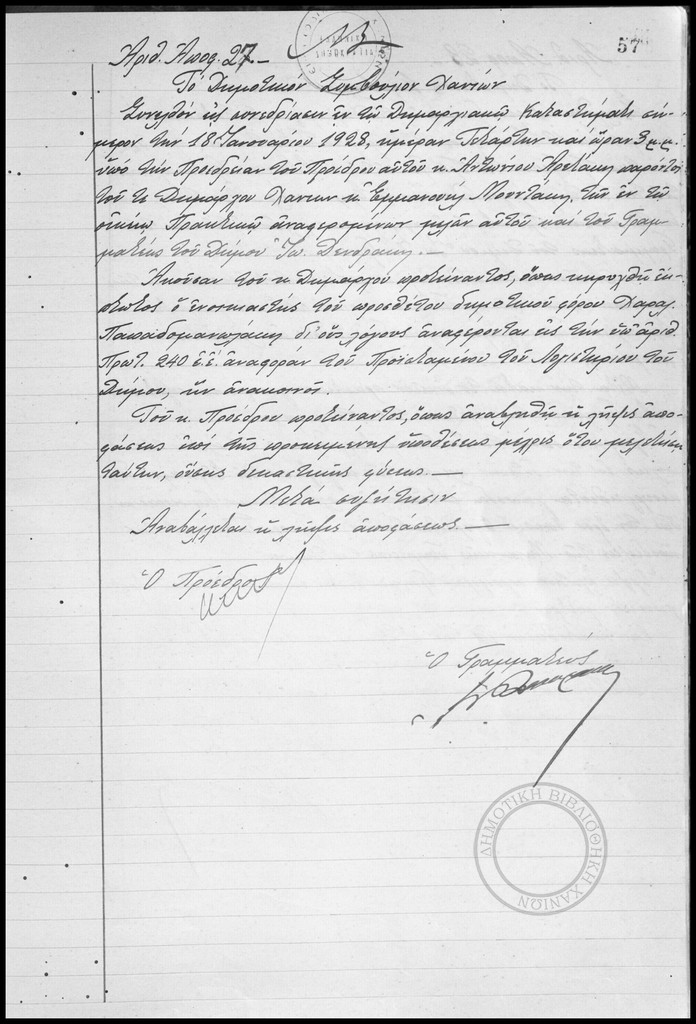 57
Ἀριθ. Ἀποφ. 27.—
Τὸ Δημοτικὸν Συμβούλιον Χανίων
Συνελθὸν εἰς συνεδρίασιν ἐν τῷ Δημαρχιακῷ Καταστήματι σή-
μερον τὴν 18 Ἰανουαρίου 1928, ἡμέραν Τετάρτην καὶ ὥραν 3 μ.μ.
ὑπὸ τὴν Προεδρίαν τοῦ Προέδρου αὐτοῦ κ. Ἀντωνίου παρόντος
τοῦ τε Δημάρχου Χανίων κ. Ἐμμανουὴλ Μουντάκη, τῶν ἐν τῷ
οἰκείῳ Πρακτικῷ ἀναφερομένων μελῶν αὐτοῦ καὶ τοῦ Γραμ-
ματέως τοῦ Δήμου Ἰω. Δενδράκη.—
Ἀκοῦσαν τοῦ κ. Δημάρχου προτείναντος, ὅπως κηρυχθῇ ἔκ-
πτωτος ὁ ἐνοικιαστὴς τοῦ προσθέτου δημοτικοῦ φόρου Χαραλ.
Παπαδομανωλάκης δι' οὓς λόγους ἀναφέρονται εἰς τὴν ὑπ' ἀριθ.
Πρωτ. 240 ἐ.ἔ. ἀναφορὰν τοῦ Προϊσταμένου τοῦ Λογιστηρίου τοῦ
Δήμου, ἣν ἀνακοινοῖ.
Τοῦ κ. Προέδρου προτείναντος, ὅπως ἀναβληθῇ ἡ λῆψις ἀπο-
φάσεως ἐπὶ τῆς προκειμένης ὑποθέσεως μέχρις ὅτου μελετήσῃ
ταύτην, οὔσης δικαστικῆς φύσεως.—
Μετὰ συζήτησιν
Ἀναβάλλεται ἡ λῆψις ἀποφάσεως.—
Ὁ Πρόεδρος
Ὁ Γραμματεύς
ΔΗΜΟΤΙΚΗ ΒΙΒΛΙΟΘΗΚΗ ΧΑΝΙΩΝ